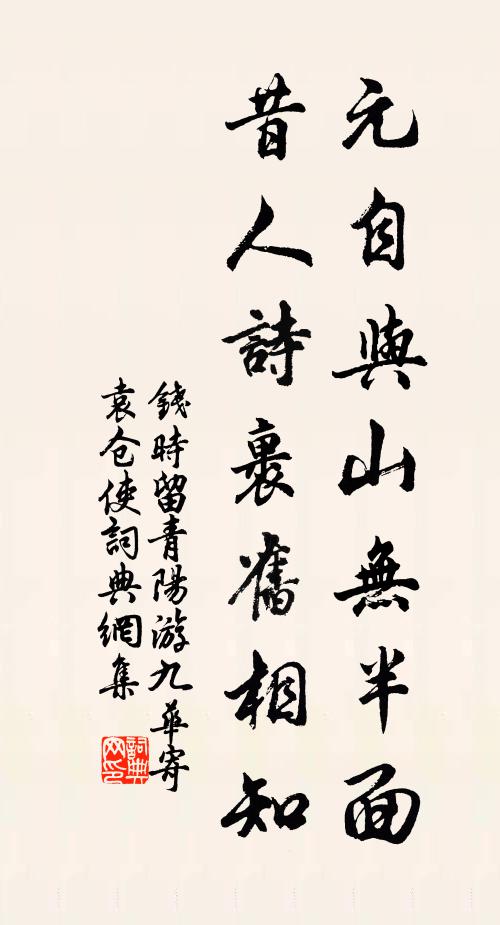 元自與山無半面
昔人詩裏舊相知
錢時留青陽游九華寄
袁仓使詞典網集
詞典网印